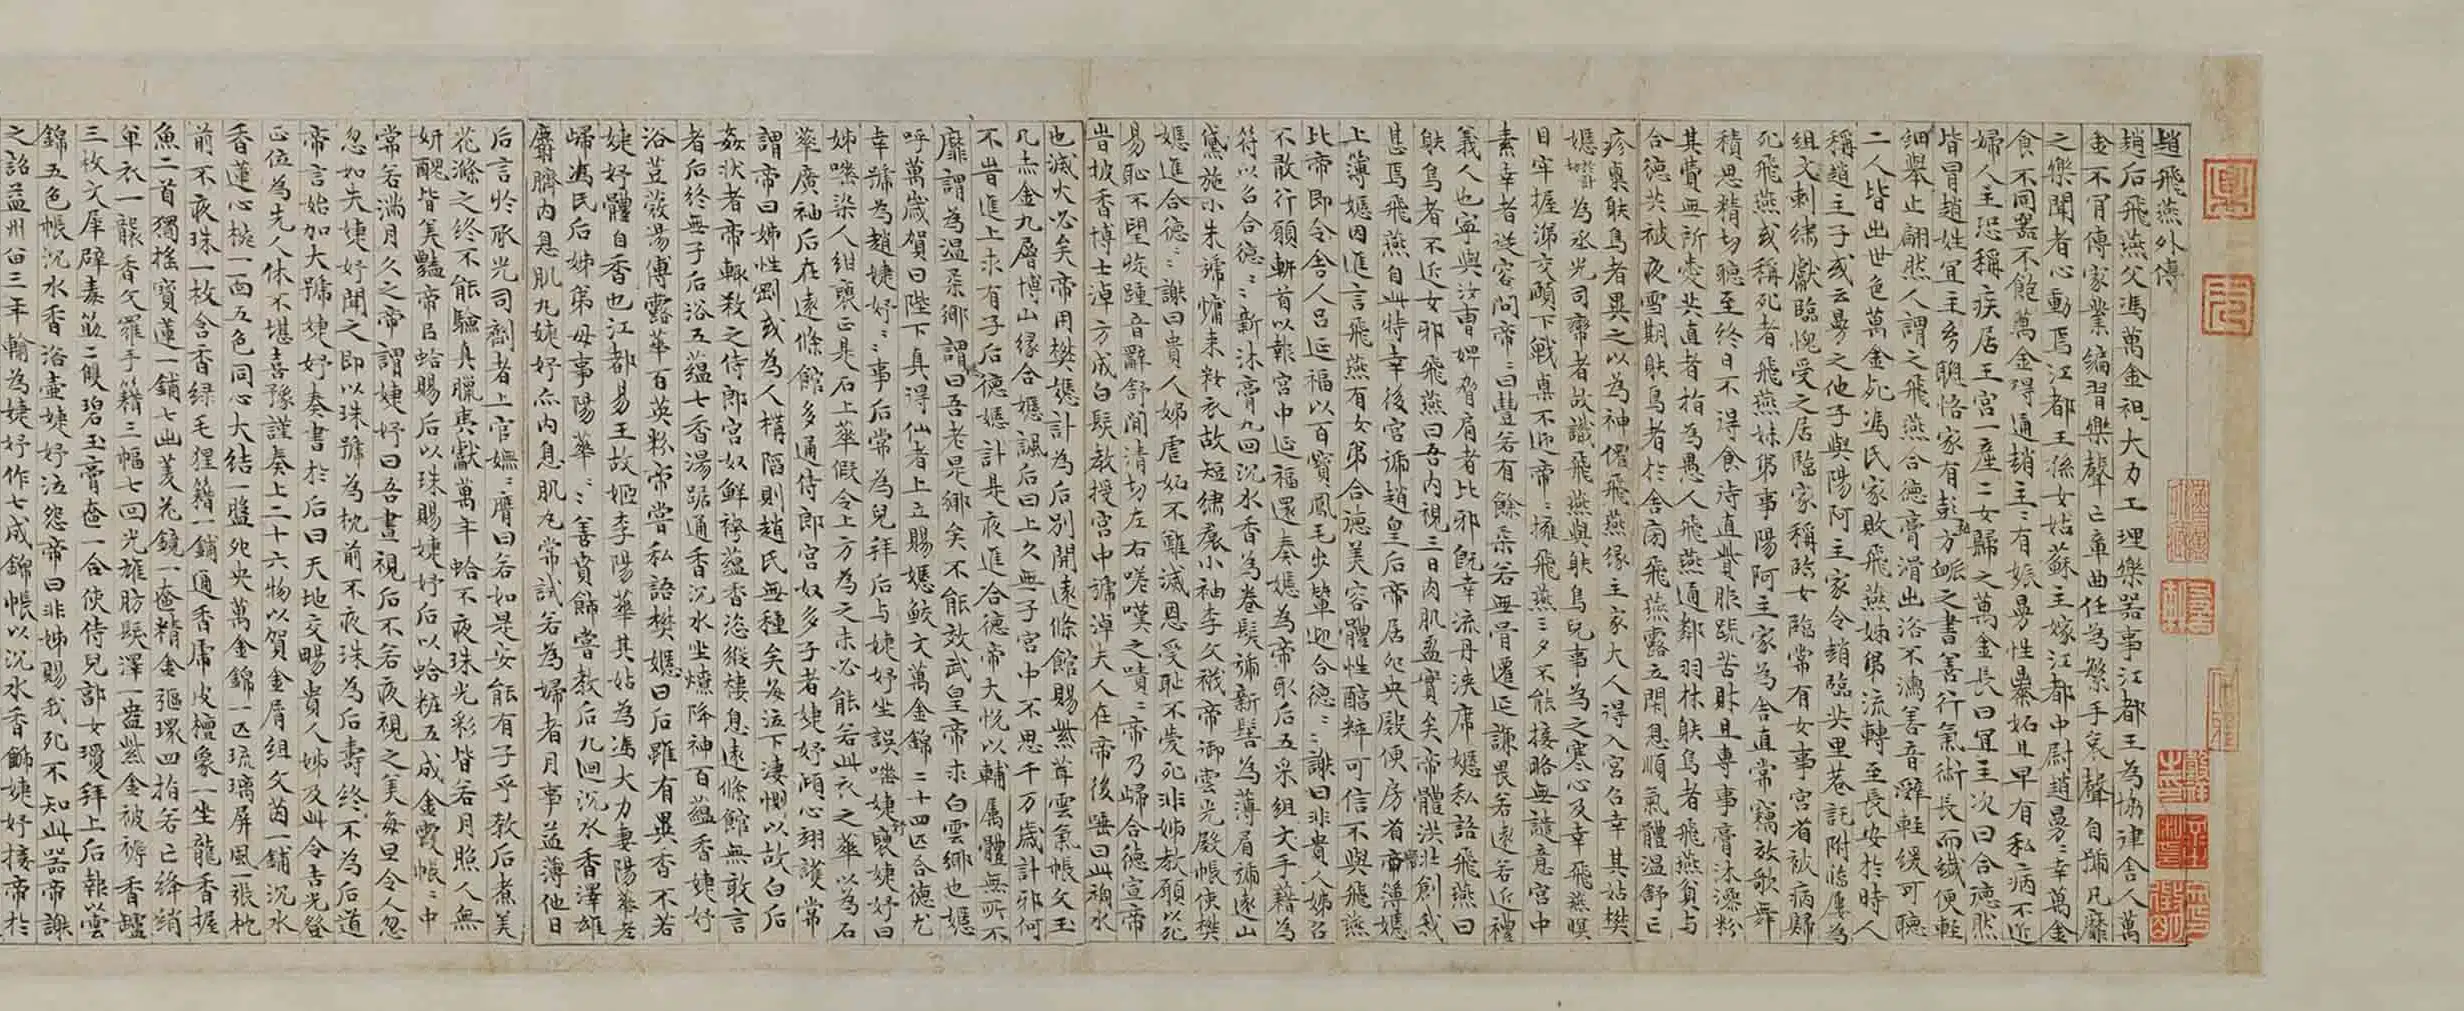 趙飛燕外傳
趙后飛燕父馮萬金祖大力工理樂器事江都王為協律舍人萬
金不肎傳家業編習樂聲亡章曲任為繁手哀聲自號凡靡
之樂聞者心動焉江都王孫女姑蘇主嫁江都中尉趙曼幸萬金
食不同器不飽萬金得通趙主〻有娠曼性暴妬且早有私病不近
婦人主恐稱疾居王宮一產二女歸之萬金長曰宜主次曰合德然
皆冒趙姓宜主幼聰悟家有彭方脈之書善行氣術長而纖便輕
細舉止翩然人謂之飛燕合德膏滑出浴不濡善音辭輕緩可聽
二人皆出世色萬金死馮氏家敗飛燕姊弟流轉至長安於時人
稱趙主子或云曼之他子與陽阿主家令趙臨共里巷託附臨屢為
組文刺繡獻臨愧受之居臨家稱臨女臨常有女事宮省被病歸
死飛燕或稱死者飛燕妹弟事陽阿主家為舍直常竊放歌舞
積思精切聽至終日不得食待直貲服疏苦財且專事膏沐澡粉
其費無所愛共直者指為愚人飛燕通鄰羽林射鳥者飛燕貧與
合德共被夜雪期射鳥者於舍旁飛燕露立閉息順氣體溫舒亡
疹粟射鳥者異之以為神僊飛燕緣主家大人得入宮召幸其姑樊
嫕為丞光司帟者故識飛燕與射鳥兒事為之寒心及幸飛燕瞑
目牢握涕交頤下戰栗不迎帝〻擁飛燕三夕不能接略無譴意宮中
素幸者從容問帝〻曰豐若有餘柔若無骨遷延謙畏若遠若近禮
義人也寧與汝曹婢脅肩者比邪既幸流丹浹席嫕私語飛燕曰
射鳥者不近女邪飛燕曰吾內視三日肉肌盈實矣帝體洪壯創我
甚焉飛燕自此特幸後宮號趙皇后帝居鴛央殿便房省帝簿嫕
上簿嫕因進言飛燕有女弟合德美容體性醇粹可信不與飛燕
比帝即令舍人呂延福以百寶鳳毛步輦迎合德〻謝曰非貴人姊召
不敢行願斬首以報宮中延福還奏嫕為帝取后五采組文手藉為
符以召合德〻新沐膏九回沉水香為卷髮號新髻為薄眉號遠山
黛施小朱號慵來粧衣故短繡裙小袖李文襪帝御雲光殿帳使樊
嫕進合德〻謝曰貴人姊虐妬不難滅恩受恥不愛死非姊教願以死
易恥不望旋踵音辭舒閒清切左右嗟嘆之嘖〻帝乃歸合德宣帝
時披香博士淖方成白髮教授宮中號淖夫人在帝後唾曰此禍水
也滅火必矣帝用樊嫕計為后別開遠條館賜紫茸雲氣帳文玉
几赤金九層博山緣合嫕諷后曰上久無子宮中不思千万歲計邪何
不時進上求有子后德嫕計是夜進合德帝大悅以輔屬體無所不
靡謂為溫柔鄉謂曰吾老是鄉矣不能效武皇帝求白雲鄉也嫕
呼萬歲賀曰陛下真得仙者上立賜嫕鮫文萬金錦二十四匹合德尤
幸號為趙婕妤〻事后常為兒拜后与婕妤坐誤唾婕妤褎婕妤曰
姊唾染人紺褎正是石上華假令上方為之未必能若此衣之華以為石
華廣袖后在遠條館多通侍郎宮奴多子者婕妤傾心翊護常
謂帝曰姊性剛或為人構陷則趙氏無種矣每泣下淒惻以故白后
姦狀者帝輒殺之侍郎宮奴鮮袴蘊香恣縱棲息遠條館無敢言
者后終無子后浴五蘊七香湯踞通香沉水坐燎降神百蘊香婕妤
浴荳蔻湯傅露華百英粉帝嘗私語樊嫕曰后雖有異香不若
婕妤體自香也江都易王故姬李陽華其姑為馮大力妻陽華老
歸馮氏后姊弟母事陽華〻善賁飾常教后九迴沉水香澤雄
麝臍內息肌丸婕妤亦內息肌丸常試若為婦者月事益薄他日
后言於承光司劑者上官嫵〻膺曰若如是安能有子乎教后煮美
花滌之終不能驗真臘夷獻萬年蛤不夜珠光彩皆若月照人無
妍醜皆美豔帝㠯蛤賜后以珠賜婕妤后以蛤粧五成金霞帳〻中
常若滿月久之帝謂婕妤曰吾晝視后不若夜視之美每旦令人忽
忽如失婕妤聞之即以珠號為枕前不夜珠為后壽終不為后道
帝言始加大號婕妤奏書於后曰天地交暢貴人姊及此令吉光登
正位為先人休不堪喜豫謹奏上二十六物以賀金屑組文茵一鋪沉水
香蓮心椀一面五色同心大結一盤鴛央萬金錦一匹琉璃屏風一張枕
前不夜珠一枚含香綠毛狸藉一鋪通香虎皮檀象一坐龍香握
魚二首獨搖寶蓮一鋪七出菱花鏡一奩精金彄環四指若亡絳綃
單衣一襲香文羅手籍三幅七回光雄肪髮澤一盎紫金被褥香罏
三枚文犀辟毒筯二雙碧玉膏奩一合使侍兒郭女瓊拜上后報以雲
錦五色帳沉水香浴壺婕妤泣怨帝曰非姊賜我死不知此器帝謝
之詔益州留三年輸為婕妤作七成錦帳以沉水香飾婕妤接帝於